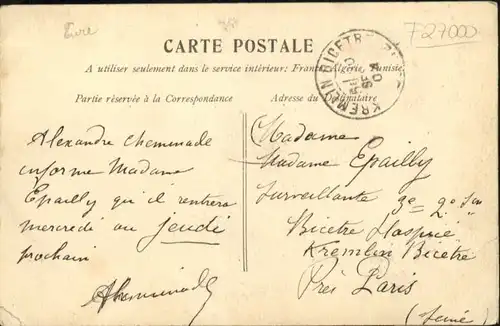 Eure
F27000
CARTE POSTALE
A utiliser seulement dans le service intérieur: France, Algérie, Tunisie.
Partie réservée à la Correspondance
Adresse du Destinataire
KREMLIN BICETRE
Alexandre Cheminade
informe Madame
Epailly qu il rentrera
mercredi ou jeudi
prochain
ACheminade
Madame
Madame Epailly
Surveillante 3e 2e
Bicetre Hospice
Kremlin Bicetre
Près Paris
(Seine)